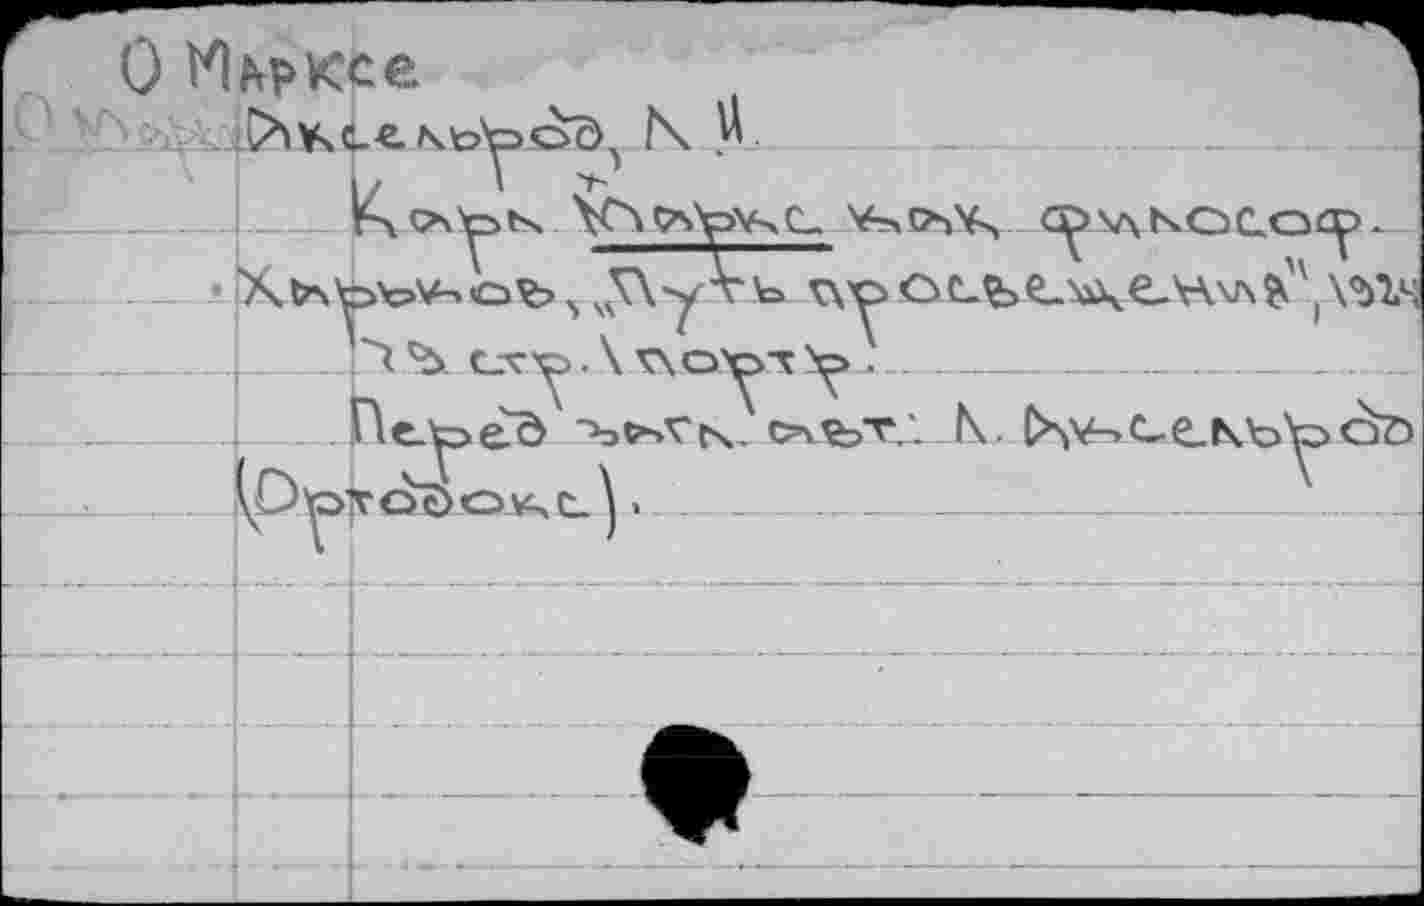 О Марксе
Аксельрод, Л. И.
Карл Маркс как философ.
Харьков, „Путь просвещения", 192
73 стр. 1 портр.
Перед загл. авт.: Л. Аксельрод
(Ортодокс).